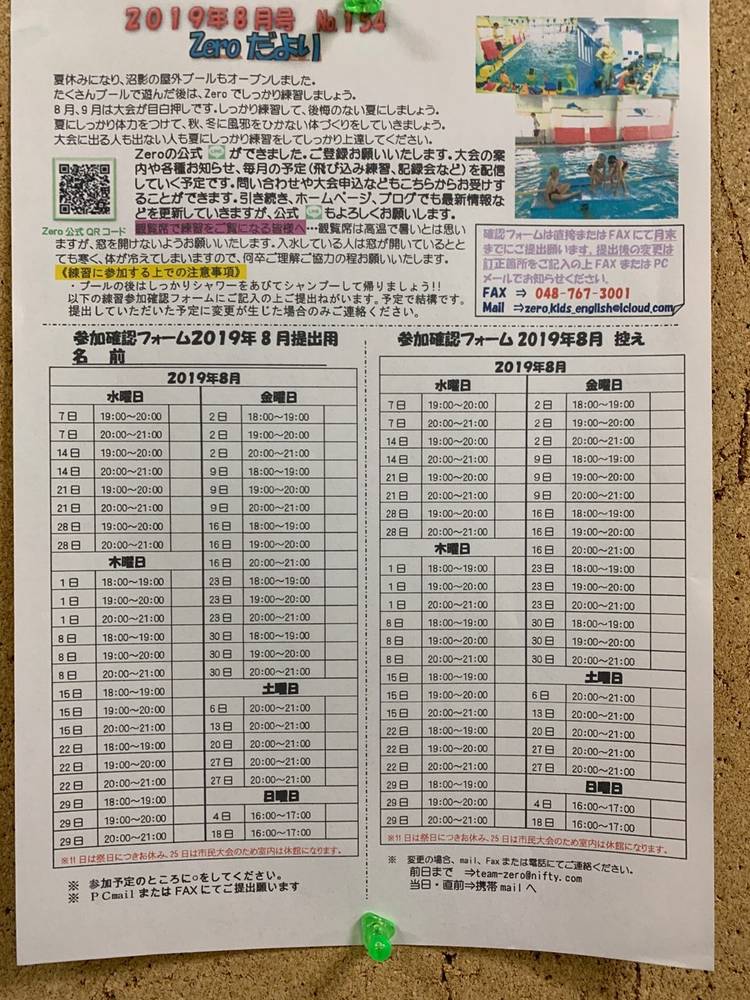 2019年8月号 No.154
Zeroだより
夏休みになり、沼影の屋外プールもオープンしました。
たくさんプールで遊んだ後は、Zeroでしっかり練習しましょう。
8月、9月は大会が目白押しです。しっかり練習して、後悔のない夏にしましょう。
夏にしっかり体力をつけて、秋、冬に風邪をひかない体づくりをしていきましょう。
大会に出る人も出ない人も夏にしっかり練習をしてしっかり上達してください。
Zeroの公式 LINE ができました。ご登録お願いいたします。大会の案
内や各種お知らせ、毎月の予定(飛び込み練習、記録会など)を配信
していく予定です。問い合わせや大会申込などもこちらからお受けす
ることができます。引き続き、ホームページ、ブログでも最新情報な
どを更新していきますが、公式 LINE もよろしくお願いします。
Zero公式QRコード
観覧席で練習をご覧になる皆様へ…観覧席は高温で暑いとは思い
ますが、窓を開けないようお願いいたします。入水している人は窓が開いているとと
ても寒く、体が冷えてしまいますので、何卒ご理解ご協力の程お願いいたします。
《練習に参加する上での注意事項》
・プールの後はしっかりシャワーをあびてシャンプーして帰りましょう!!
以下の練習参加確認フォームにご記入の上ご提出ねがいます。予定で結構です。
提出していただいた予定に変更が生じた場合のみご連絡ください。
確認フォームは直接またはFAXにて月末
までにご提出願います。提出後の変更は
訂正箇所をご記入の上FAXまたはPC
メールお知らせください。
FAX ⇒ 048-767-3001
Mail ⇒zero.kids_english@icloud.com
参加確認フォーム2019年8月提出用
名 前
2019年8月
水曜日
7日 19:00~20:00
7日 20:00~21:00
14日 19:00~20:00
14日 20:00~21:00
21日 19:00~20:00
21日 20:00~21:00
28日 19:00~20:00
28日 20:00~21:00
木曜日
1日 18:00~19:00
1日 19:00~20:00
1日 20:00~21:00
8日 18:00~19:00
8日 19:00~20:00
8日 20:00~21:00
15日 18:00~19:00
15日 19:00~20:00
15日 20:00~21:00
22日 18:00~19:00
22日 19:00~20:00
22日 20:00~21:00
29日 18:00~19:00
29日 19:00~20:00
29日 20:00~21:00
金曜日
2日 18:00~19:00
2日 19:00~20:00
2日 20:00~21:00
9日 18:00~19:00
9日 19:00~20:00
9日 20:00~21:00
16日 18:00~19:00
16日 19:00~20:00
16日 20:00~21:00
23日 18:00~19:00
23日 19:00~20:00
23日 20:00~21:00
30日 18:00~19:00
30日 19:00~20:00
30日 20:00~21:00
土曜日
6日 20:00~21:00
13日 20:00~21:00
20日 20:00~21:00
27日 20:00~21:00
27日 20:00~21:00
日曜日
4日 16:00~17:00
18日 16:00~17:00
※11日は祭日につきお休み、25日は市民大会のため室内は休館になります。
※ 参加予定のところに○をしてください。
※ PCmailまたはFAXにてご提出願います
参加確認フォーム2019年8月 控え
2019年8月
水曜日
7日 19:00~20:00
7日 20:00~21:00
14日 19:00~20:00
14日 20:00~21:00
21日 19:00~20:00
21日 20:00~21:00
28日 19:00~20:00
28日 20:00~21:00
木曜日
1日 18:00~19:00
1日 19:00~20:00
1日 20:00~21:00
8日 18:00~19:00
8日 19:00~20:00
8日 20:00~21:00
15日 18:00~19:00
15日 19:00~20:00
15日 20:00~21:00
22日 18:00~19:00
22日 19:00~20:00
22日 20:00~21:00
29日 18:00~19:00
29日 19:00~20:00
29日 20:00~21:00
金曜日
2日 18:00~19:00
2日 19:00~20:00
2日 20:00~21:00
9日 18:00~19:00
9日 19:00~20:00
9日 20:00~21:00
16日 18:00~19:00
16日 19:00~20:00
16日 20:00~21:00
23日 18:00~19:00
23日 19:00~20:00
23日 20:00~21:00
30日 18:00~19:00
30日 19:00~20:00
30日 20:00~21:00
土曜日
6日 20:00~21:00
13日 20:00~21:00
20日 20:00~21:00
27日 20:00~21:00
27日 20:00~21:00
日曜日
4日 16:00~17:00
18日 16:00~17:00
※11日は祭日につきお休み、25日は市民大会のため室内は休館になります。
※ 変更の場合、mail、Faxまたは電話にてご連絡ください。
前日まで ⇒team-zero@nifty.com
当日・直前⇒携帯mailへ